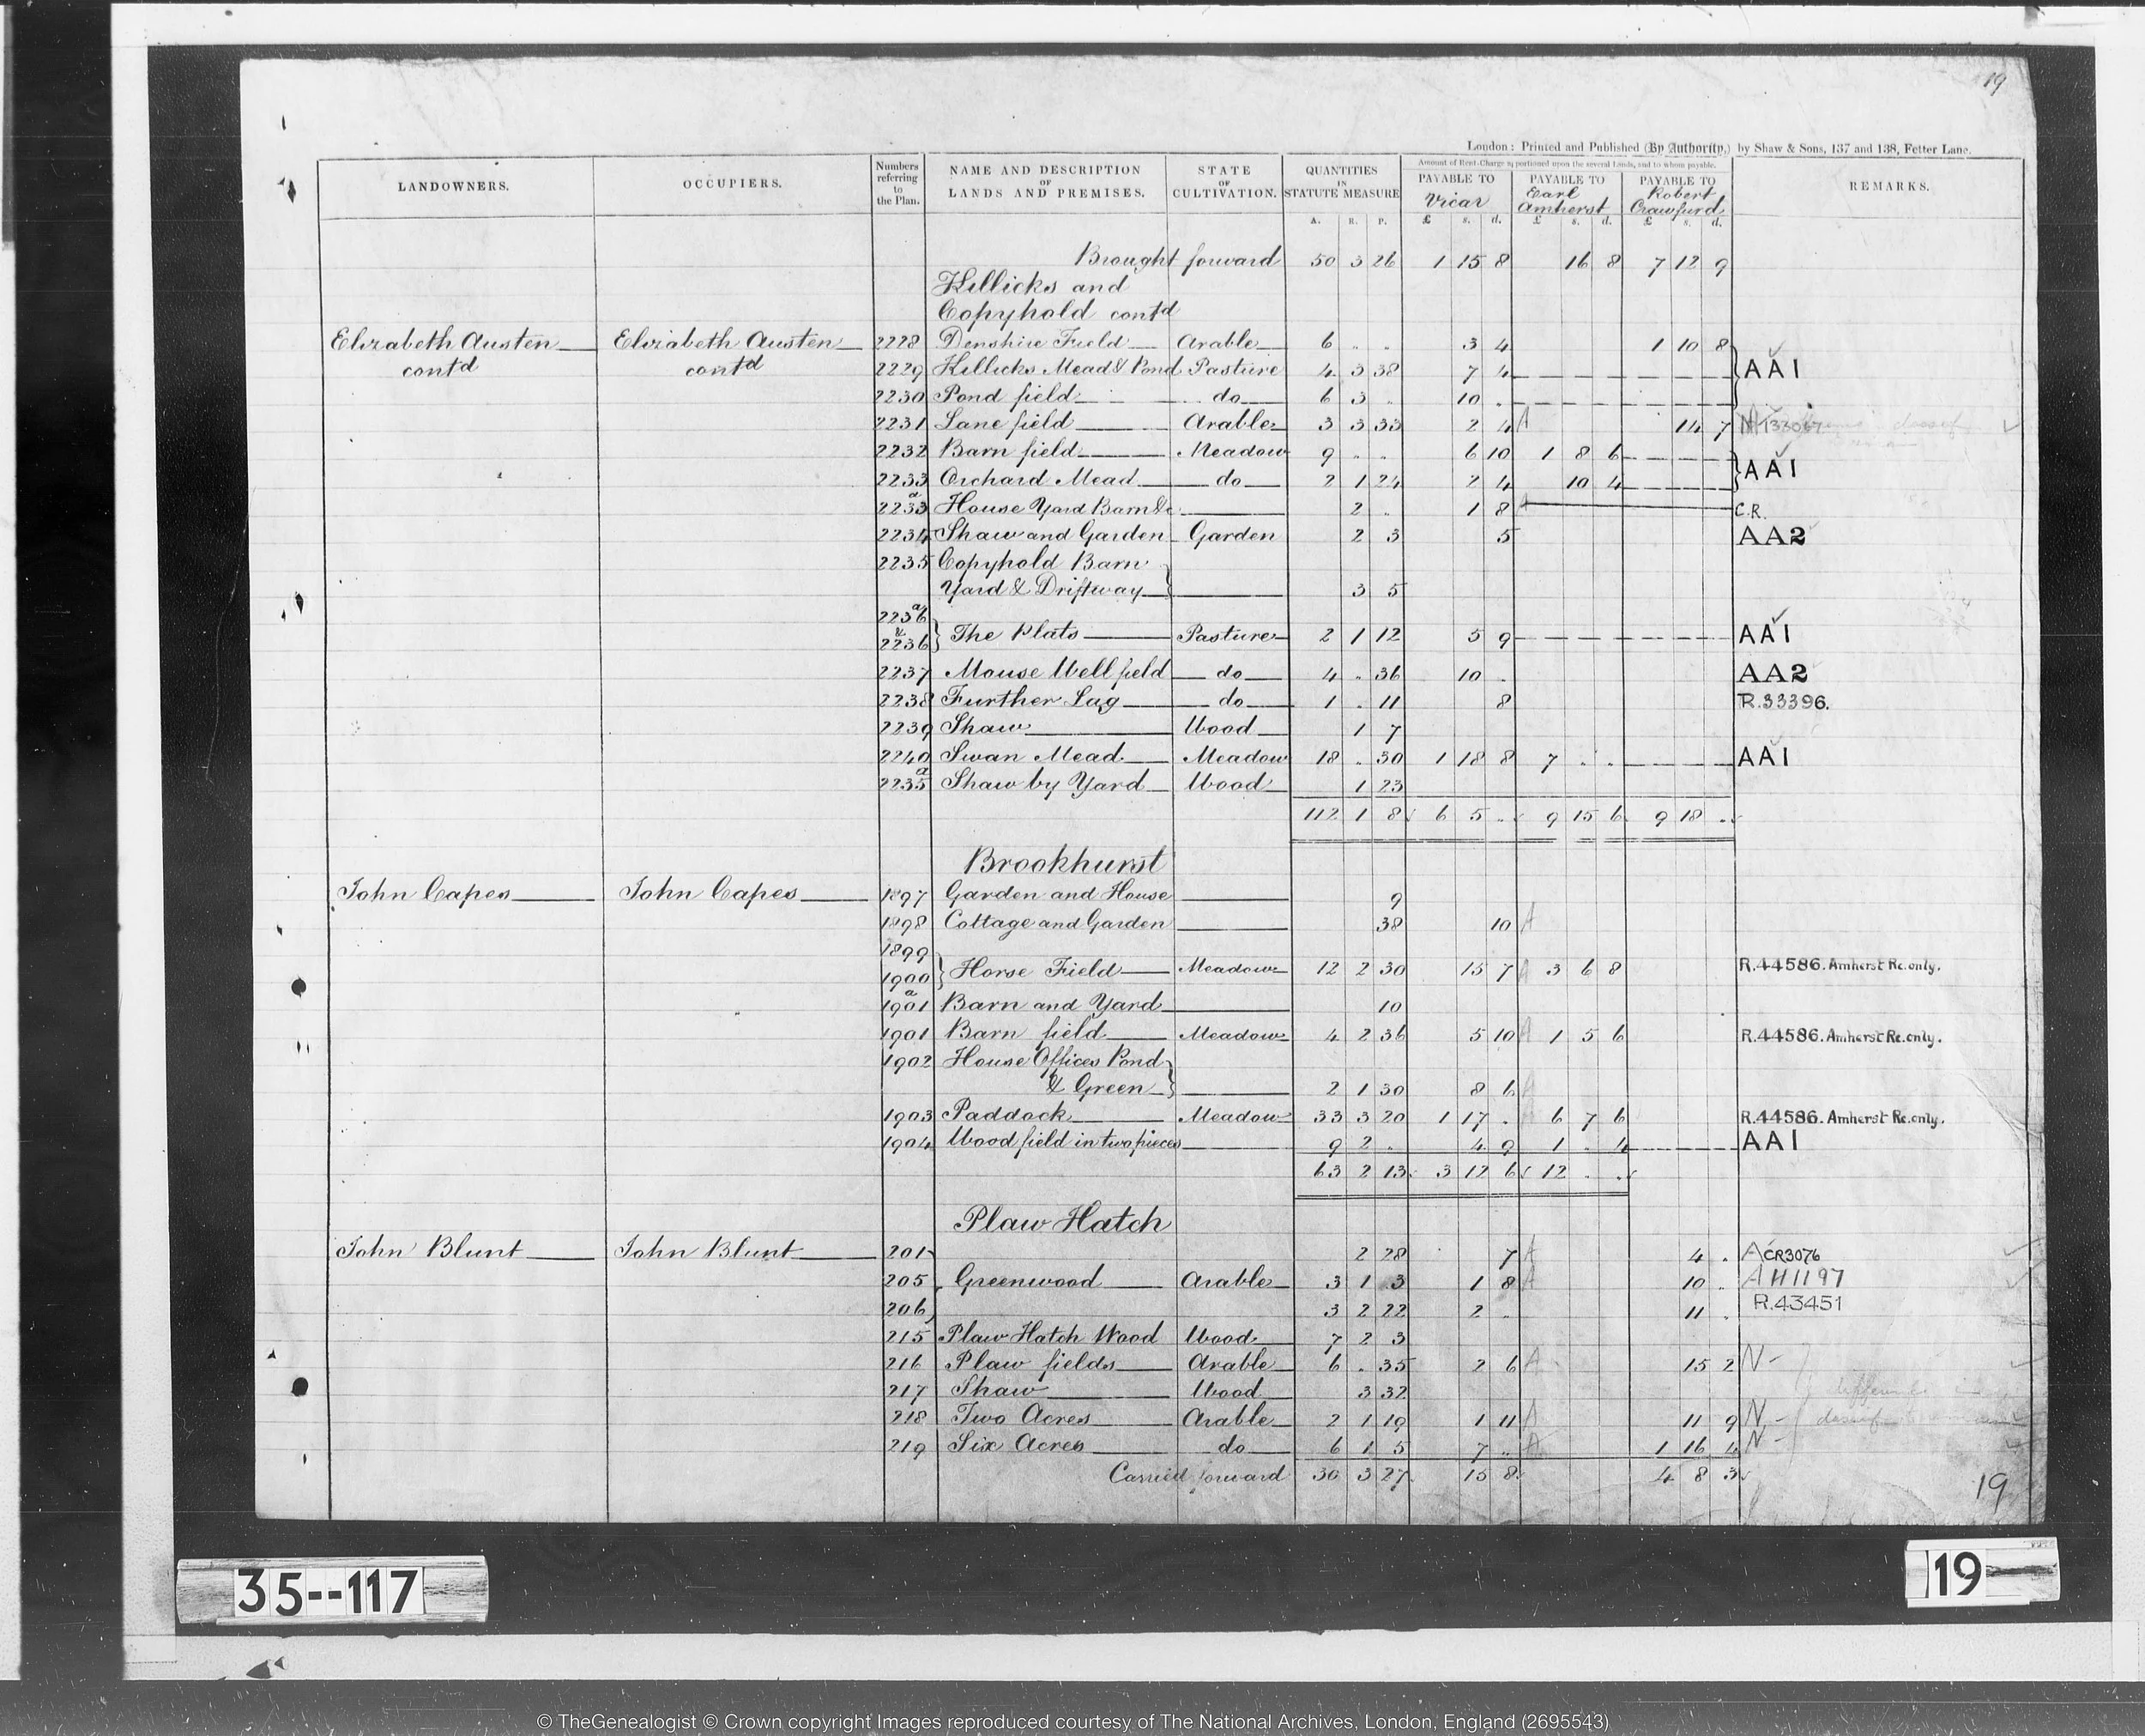 19
London: Printed and Published (By Authority,) by Shaw & Sons, 137 and 138, Fetter Lane.
LANDOWNERS. OCCUPIERS. Numbers referring to the Plan. NAME AND DESCRIPTION OF LANDS AND PREMISES. STATE OF CULTIVATION. QUANTITIES IN STATUTE MEASURE Amount of Rent-Charge apportioned upon the several Lands, and to whom payable. PAYABLE TO Vicar PAYABLE TO Earl Amherst PAYABLE TO Robert Crawfurd REMARKS.
A. R. P. £ s. d. £ s. d. £ s. d.
Brought forward 50 3 26 1 15 8 16 8 7 12 9
Killicks and
Copyhold contd
Elizabeth Austen Elizabeth Austen 2228 Denshire Field Arable 6 . . 3 4 1 10 8
contd contd 2229 Killicks Mead & Pond Pasture 4 3 38 7 4 AA1
2230 Pond field do 6 3 . 10 .
2231 Lane field Arable 3 3 33 2 4 A 14 7
2232 Barn field Meadow 9 . . 6 10 1 8 6
2233 Orchard Mead do 2 1 24 2 4 10 4 AA1
2233a House Yard Barn &c 2 . 1 8 A C.R.
2234 Shaw and Garden Garden 2 3 5 AA2
2235 Copyhold Barn
Yard & Driftway 3 5
2236a
& 2236 The Plats Pasture 2 1 12 5 9 AA1
2237 Mouse Well field do 4 . 36 10 . AA2
2238 Further Lag do 1 . 11 8 R.33396.
2239 Shaw Wood 1 7
2240 Swan Mead Meadow 18 . 30 1 18 8 7 . . AA1
2235a Shaw by Yard Wood 1 23
112 1 8 6 5 . 9 15 6 9 18 .
Brookhurst
John Capes John Capes 1897 Garden and House 9
1898 Cottage and Garden 38 10 A
1899
1900 Horse Field Meadow 12 2 30 15 7 A 3 6 8 R.44586. Amherst Rc. only.
1901a Barn and Yard 10
1901 Barn field Meadow 4 2 36 5 10 A 1 5 6 R.44586. Amherst Rc. only.
1902 House Offices Pond
& Green 2 1 30 8 6 A
1903 Paddock Meadow 33 3 20 1 17 . 6 7 6 R.44586. Amherst Rc. only.
1904 Wood field in two pieces 9 2 . 4 9 1 . 4 AA1
63 2 13 3 12 6 12 . .
Plaw Hatch
John Blunt John Blunt 201 2 28 7 A 4 . A CR3076
205 Greenwood Arable 3 1 3 1 8 A 10 . A H1197
206 3 2 22 2 . 11 . R.43451
215 Plaw Hatch Wood Wood 7 2 3
216 Plaw fields Arable 6 . 35 2 6 A 15 2 N -
217 Shaw Wood 3 32
218 Two Acres Arable 2 1 19 1 11 A 11 9 N -
219 Six Acres do 6 1 5 7 . A 1 16 4 N -
Carried forward 30 3 27 15 8 4 8 3
19
35--117
19
© TheGenealogist © Crown copyright Images reproduced courtesy of The National Archives, London, England (2695543)